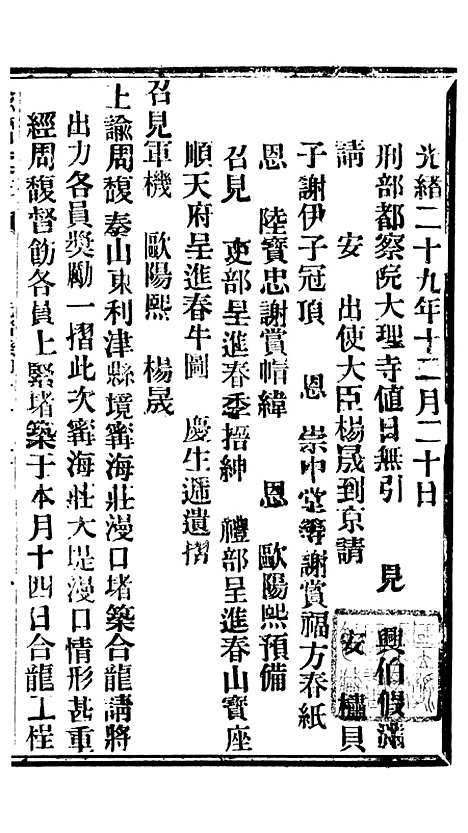 光緒二十九年十二月二十日
刑部都察院大理寺值日無引　見　興伯假滿
請　安　出使大臣楊晟到京請　安　櫺貝
子謝伊子冠頂　恩　崇中堂等謝賞福方春紙
恩　陸寶忠謝賞帽緯　恩　歐陽熙預備
召見　吏部呈進春季搢紳　禮部呈進春山寶座
順天府呈進春牛圖　慶生遞遺摺
召見軍機　歐陽熙　楊晟
上諭周馥奏山東利津縣境甯海莊漫口堵築合龍請將
出力各員獎勵一摺此次甯海莊大堤漫口情形甚重
經周馥督飭各員上緊堵築于本月十四日合龍工程